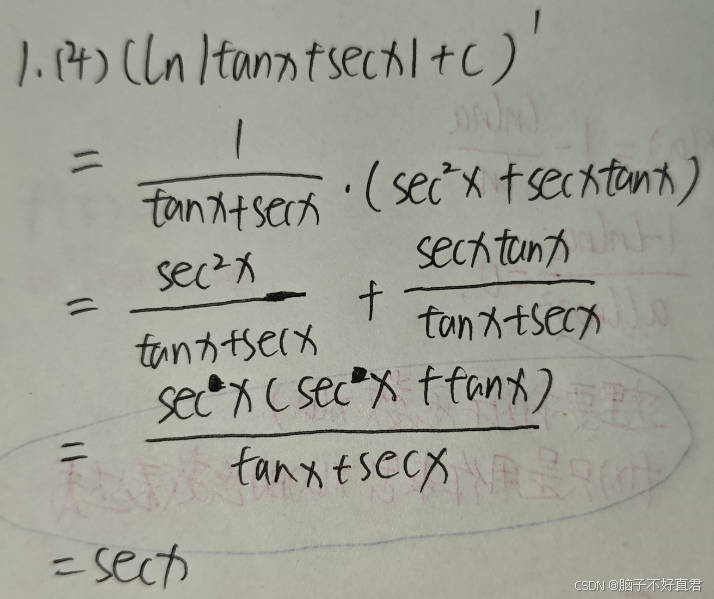 1.(4) (ln|tanx+secx|+c)'
= 1/(tanx+secx) · (sec²x+secxtanx)
= sec²x/(tanx+secx) + secxtanx/(tanx+secx)
= secx(secx+tanx)/(tanx+secx)
=secx
CSDN @脑子不好直君